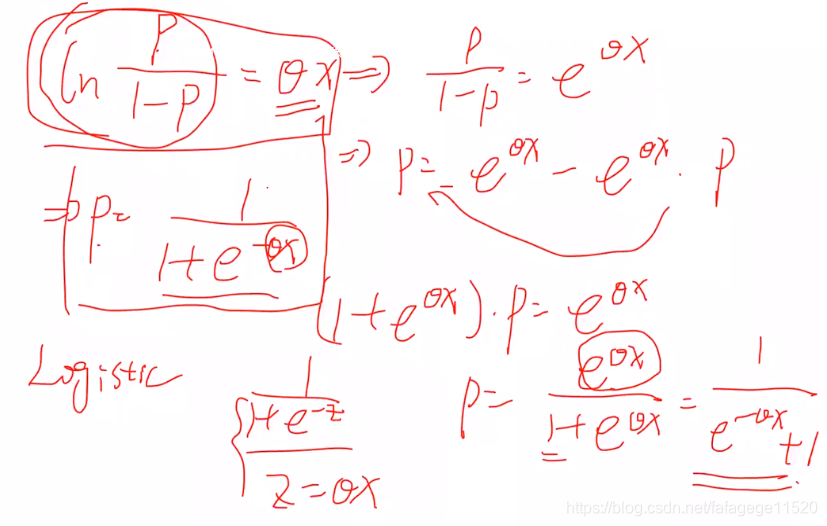 ln P/(1-P) = θx ⇒ P/(1-p) = e^{θx}
⇒ P = e^{θx} - e^{θx} · P
⇒ P = 1/(1+e^{-θx})
(1+e^{θx}) · P = e^{θx}
Logistic
{ 1/(1+e^{-z})
z = θx
P = e^{θx}/(1+e^{θx}) = 1/(e^{-θx}+1)
https://blog.csdn.net/fafagege11520